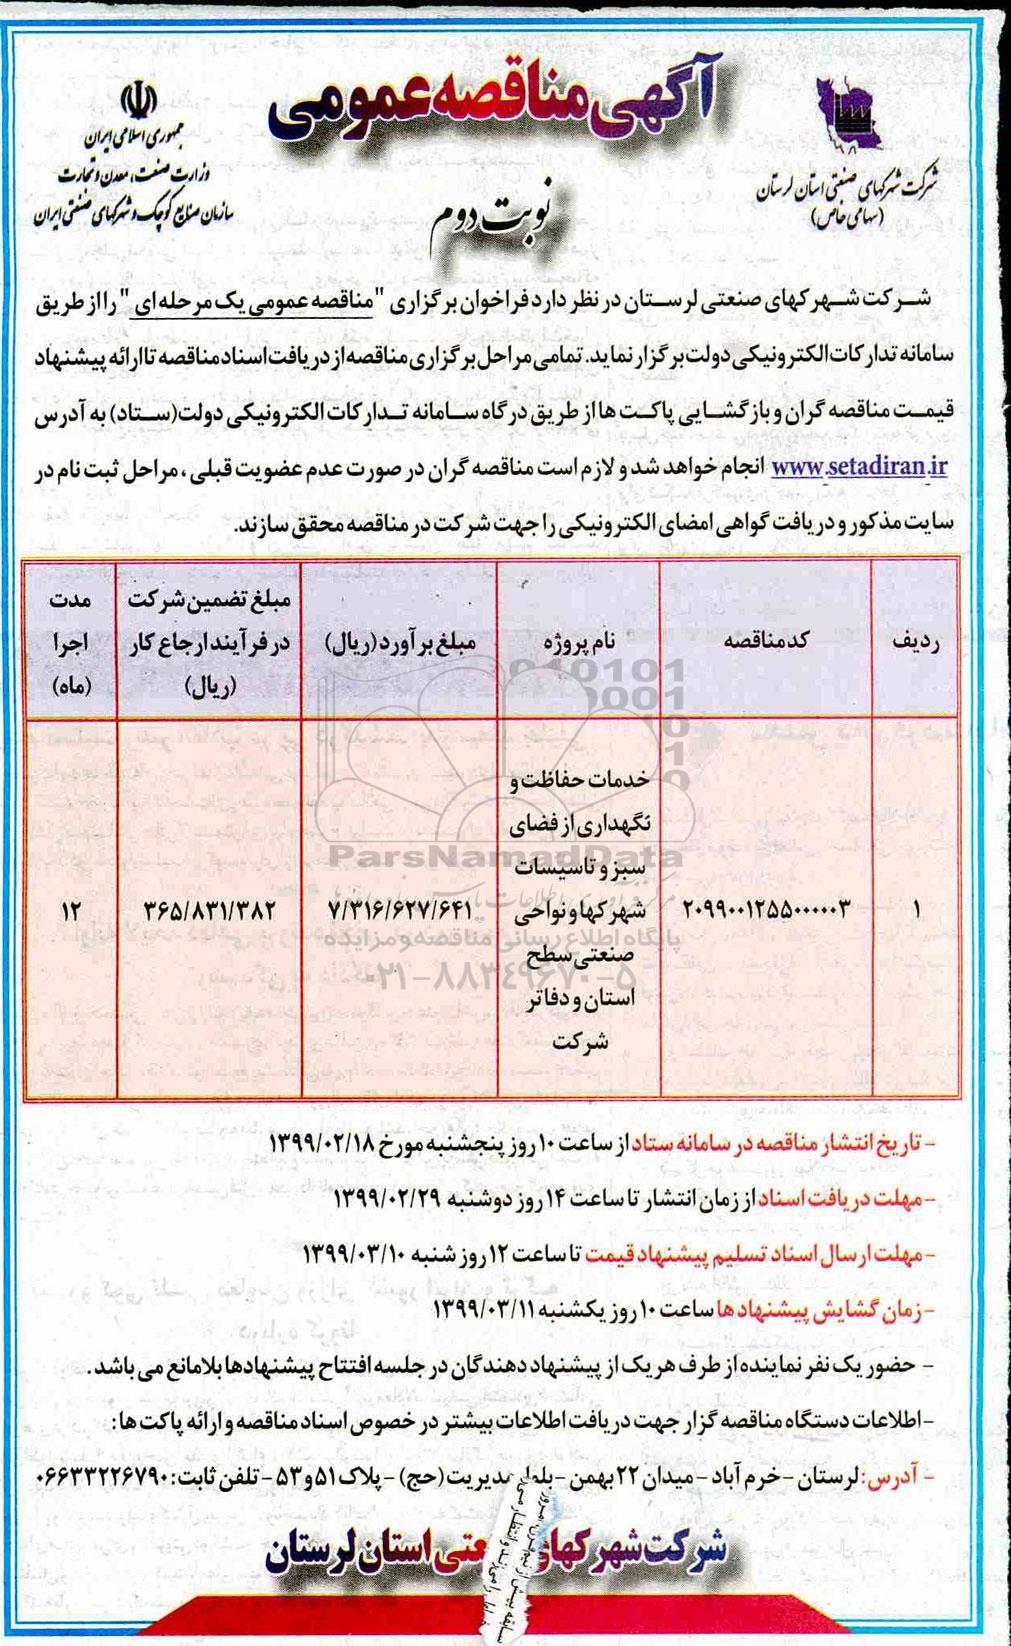 آگهی مناقصه عمومی
نوبت دوم
جمهوری اسلامی ایران
وزارت صنعت، معدن و تجارت
سازمان صنایع کوچک و شهرکهای صنعتی ایران
شرکت شهرکهای صنعتی استان لرستان
(سهامی خاص)
شرکت شهرکهای صنعتی لرستان در نظر دارد فراخوان برگزاری "مناقصه عمومی یک مرحله ای" را از طریق
سامانه تدارکات الکترونیکی دولت برگزار نماید. تمامی مراحل برگزاری مناقصه از دریافت اسناد مناقصه تا ارائه پیشنهاد
قیمت مناقصه گران و بازگشایی پاکت ها از طریق درگاه سامانه تدارکات الکترونیکی دولت (ستاد) به آدرس
www.setadiran.ir انجام خواهد شد و لازم است مناقصه گران در صورت عدم عضویت قبلی، مراحل ثبت نام در
سایت مذکور و دریافت گواهی امضای الکترونیکی را جهت شرکت در مناقصه محقق سازند.
ردیف
کد مناقصه
نام پروژه
مبلغ برآورد (ریال)
مبلغ تضمین شرکت
در فرآیند ارجاع کار
(ریال)
مدت
اجرا
(ماه)
۱
۲۰۹۹۰۰۱۲۵۵۰۰۰۰۰۳
خدمات حفاظت و
نگهداری از فضای
سبز و تاسیسات
شهرکها و نواحی
صنعتی سطح
استان و دفاتر
شرکت
۷/۳۱۶/۶۲۷/۶۴۱
۳۶۵/۸۳۱/۳۸۲
۱۲
ParsNamadData
پایگاه اطلاع رسانی مناقصه و مزایده
۰۲۱-۸۸۳۴۹۶۷۰-۵
- تاریخ انتشار مناقصه در سامانه ستاد از ساعت ۱۰ روز پنجشنبه مورخ ۱۳۹۹/۰۲/۱۸
- مهلت دریافت اسناد از زمان انتشار تا ساعت ۱۴ روز دوشنبه ۱۳۹۹/۰۲/۲۹
- مهلت ارسال اسناد تسلیم پیشنهاد قیمت تا ساعت ۱۲ روز شنبه ۱۳۹۹/۰۳/۱۰
- زمان گشایش پیشنهادها ساعت ۱۰ روز یکشنبه ۱۳۹۹/۰۳/۱۱
- حضور یک نفر نماینده از طرف هریک از پیشنهاد دهندگان در جلسه افتتاح پیشنهادها بلامانع می باشد.
- اطلاعات دستگاه مناقصه گزار جهت دریافت اطلاعات بیشتر در خصوص اسناد مناقصه و ارائه پاکت ها:
- آدرس: لرستان - خرم آباد - میدان ۲۲ بهمن - بلوار مدیریت (حج) - پلاک ۵۱ و ۵۳ - تلفن ثابت: ۰۶۶۳۳۲۲۶۷۹۰
شرکت شهرکهای صنعتی استان لرستان